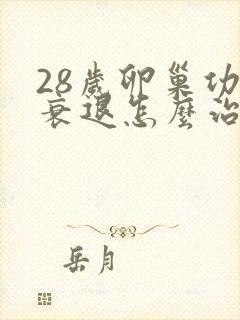 28歲卵巢功
衰退怎麼治
岳月